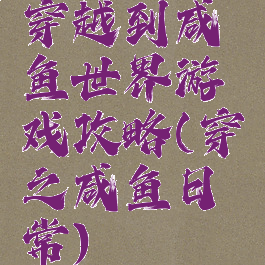 穿越到咸
鱼世界游
戏攻略(穿
之咸鱼日
常)